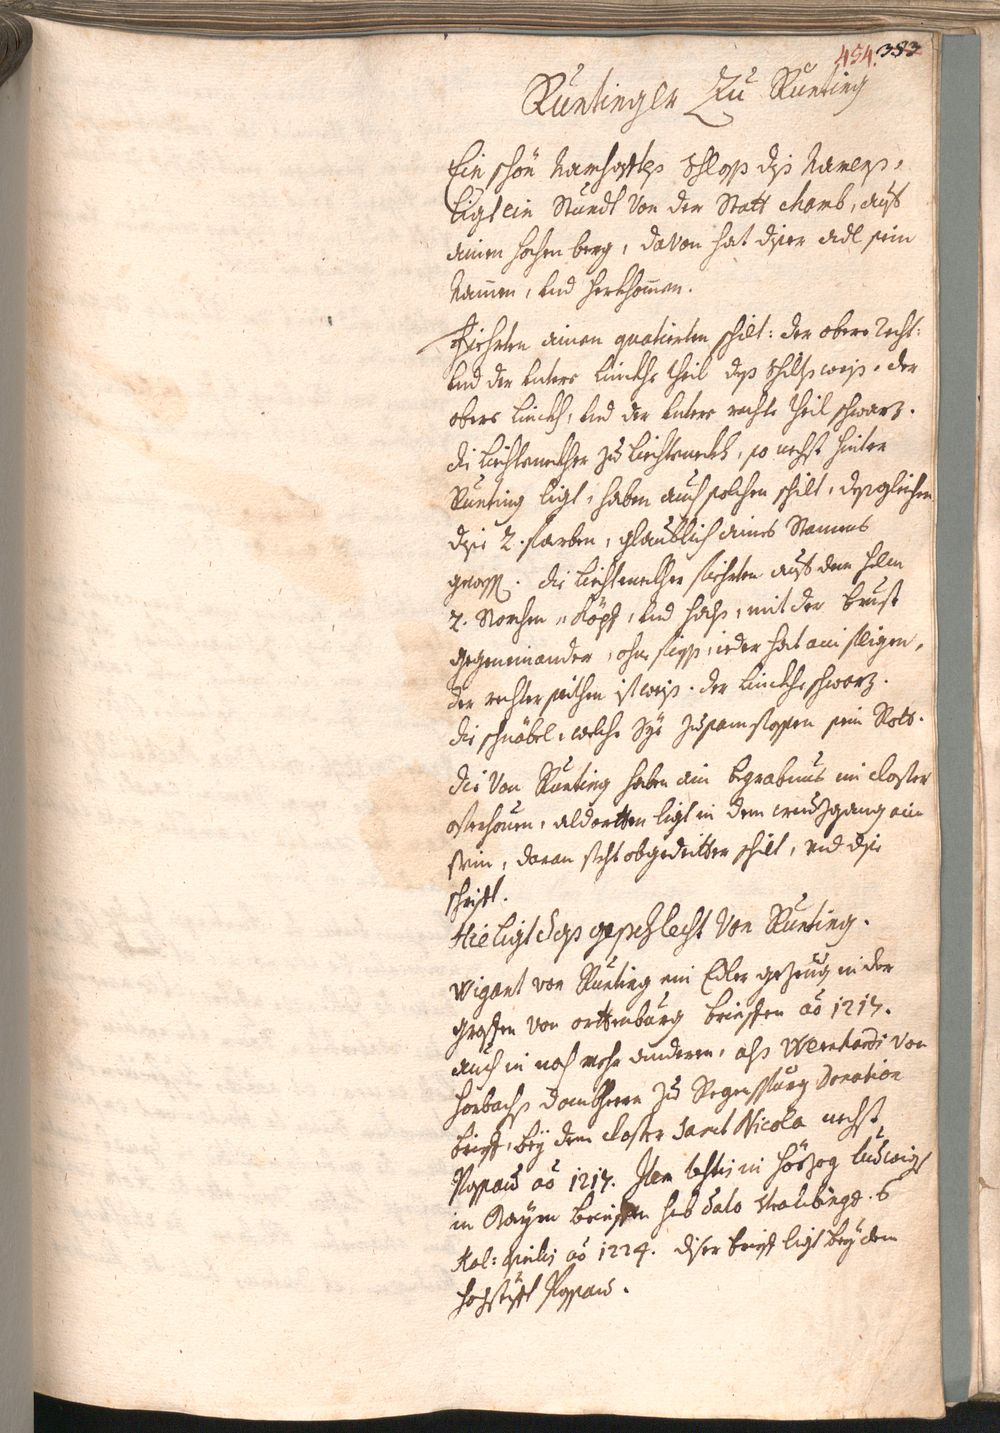 454. 383
Runtinger Zu Runting
Ein schön Namhafftes Schloss diss Namens,
ligt ein Stundt von der Statt Chamb, auf
ainen hochen berg, davon hat diser adl sein
Nammen, und herkhommen.
Fiehrten ainen quatierten schilt: der obere recht:
und der untere linckhe theil dess Schilts weiss, der
obere linckh, und der untere rechte theil schwarz.
die Liechteneckher zu Liechteneckh, so nechst hinter
Runting ligt, haben auch solchen schilt, dessgleichen
dise 2. farben, glaublich aines Stammens
gewest. die Liechteneckher fiehrten auf dem helm
2. Storchen Köpf, und halss, mit der brust
gegeneinander, ohne fiess, ieder hat ain fligen,
der rechter seithen ist weiss. der linckhe schwarz.
die schnäbel, welche Sye zusam stossen sein Roth.
die von Runting haben ain begrabnus im Closter
osterhouen, aldortten ligt in dem creuzgang ain
stein, daran steht obgedeitter schilt, und dise
schrifft.
Hie ligt das geschlecht von Runting.
Wigant von Runting ein Edler gezeug in der
graffen von orttenburg brieffen aō 1217.
auch in noch mehr anderen, alss Wernhardi von
horbachss domherrn zu Regensspurg Donation
brieff, bey dem Closter Sanct Nicola nechst
Passau aō 1217. Item in herzog Ludwigs
in Bayrn brieffen sub dato Straubinge. 6
Kal: Aprilis aō 1224. diser brieff ligt bey dem
hochstifft Passau.